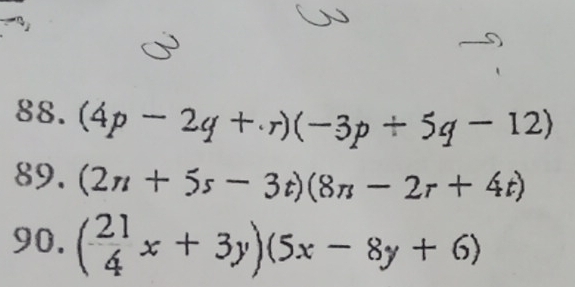 3 3
88. (4p − 2q + r)(−3p + 5q − 12)
89. (2n + 5s − 3t)(8n − 2r + 4t)
90. (21/4 x + 3y)(5x − 8y + 6)